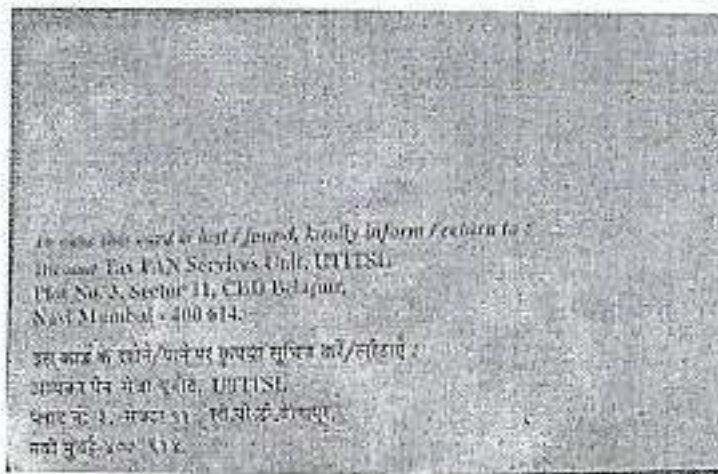 In case this card is lost / found, kindly inform / return to :
Income Tax PAN Services Unit, UTITSL
Plot No. 3, Sector 11, CBD Belapur,
Navi Mumbai - 400 614.
इस कार्ड के खोने/पाने पर कृपया सूचित करें/लौटाएं :
आयकर पैन सेवा यूनीट, UTITSL
प्लाट नं: ३, सेक्टर ११, सी.बी.डी.बेलापूर,
नवी मुंबई-४०० ६१४.